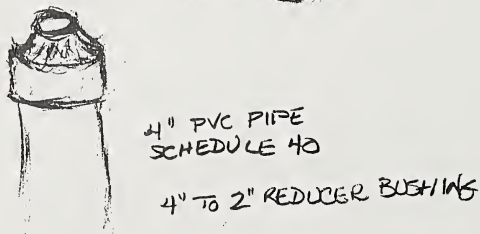 4" PVC PIPE
SCHEDULE 40
4" TO 2" REDUCER BUSHING